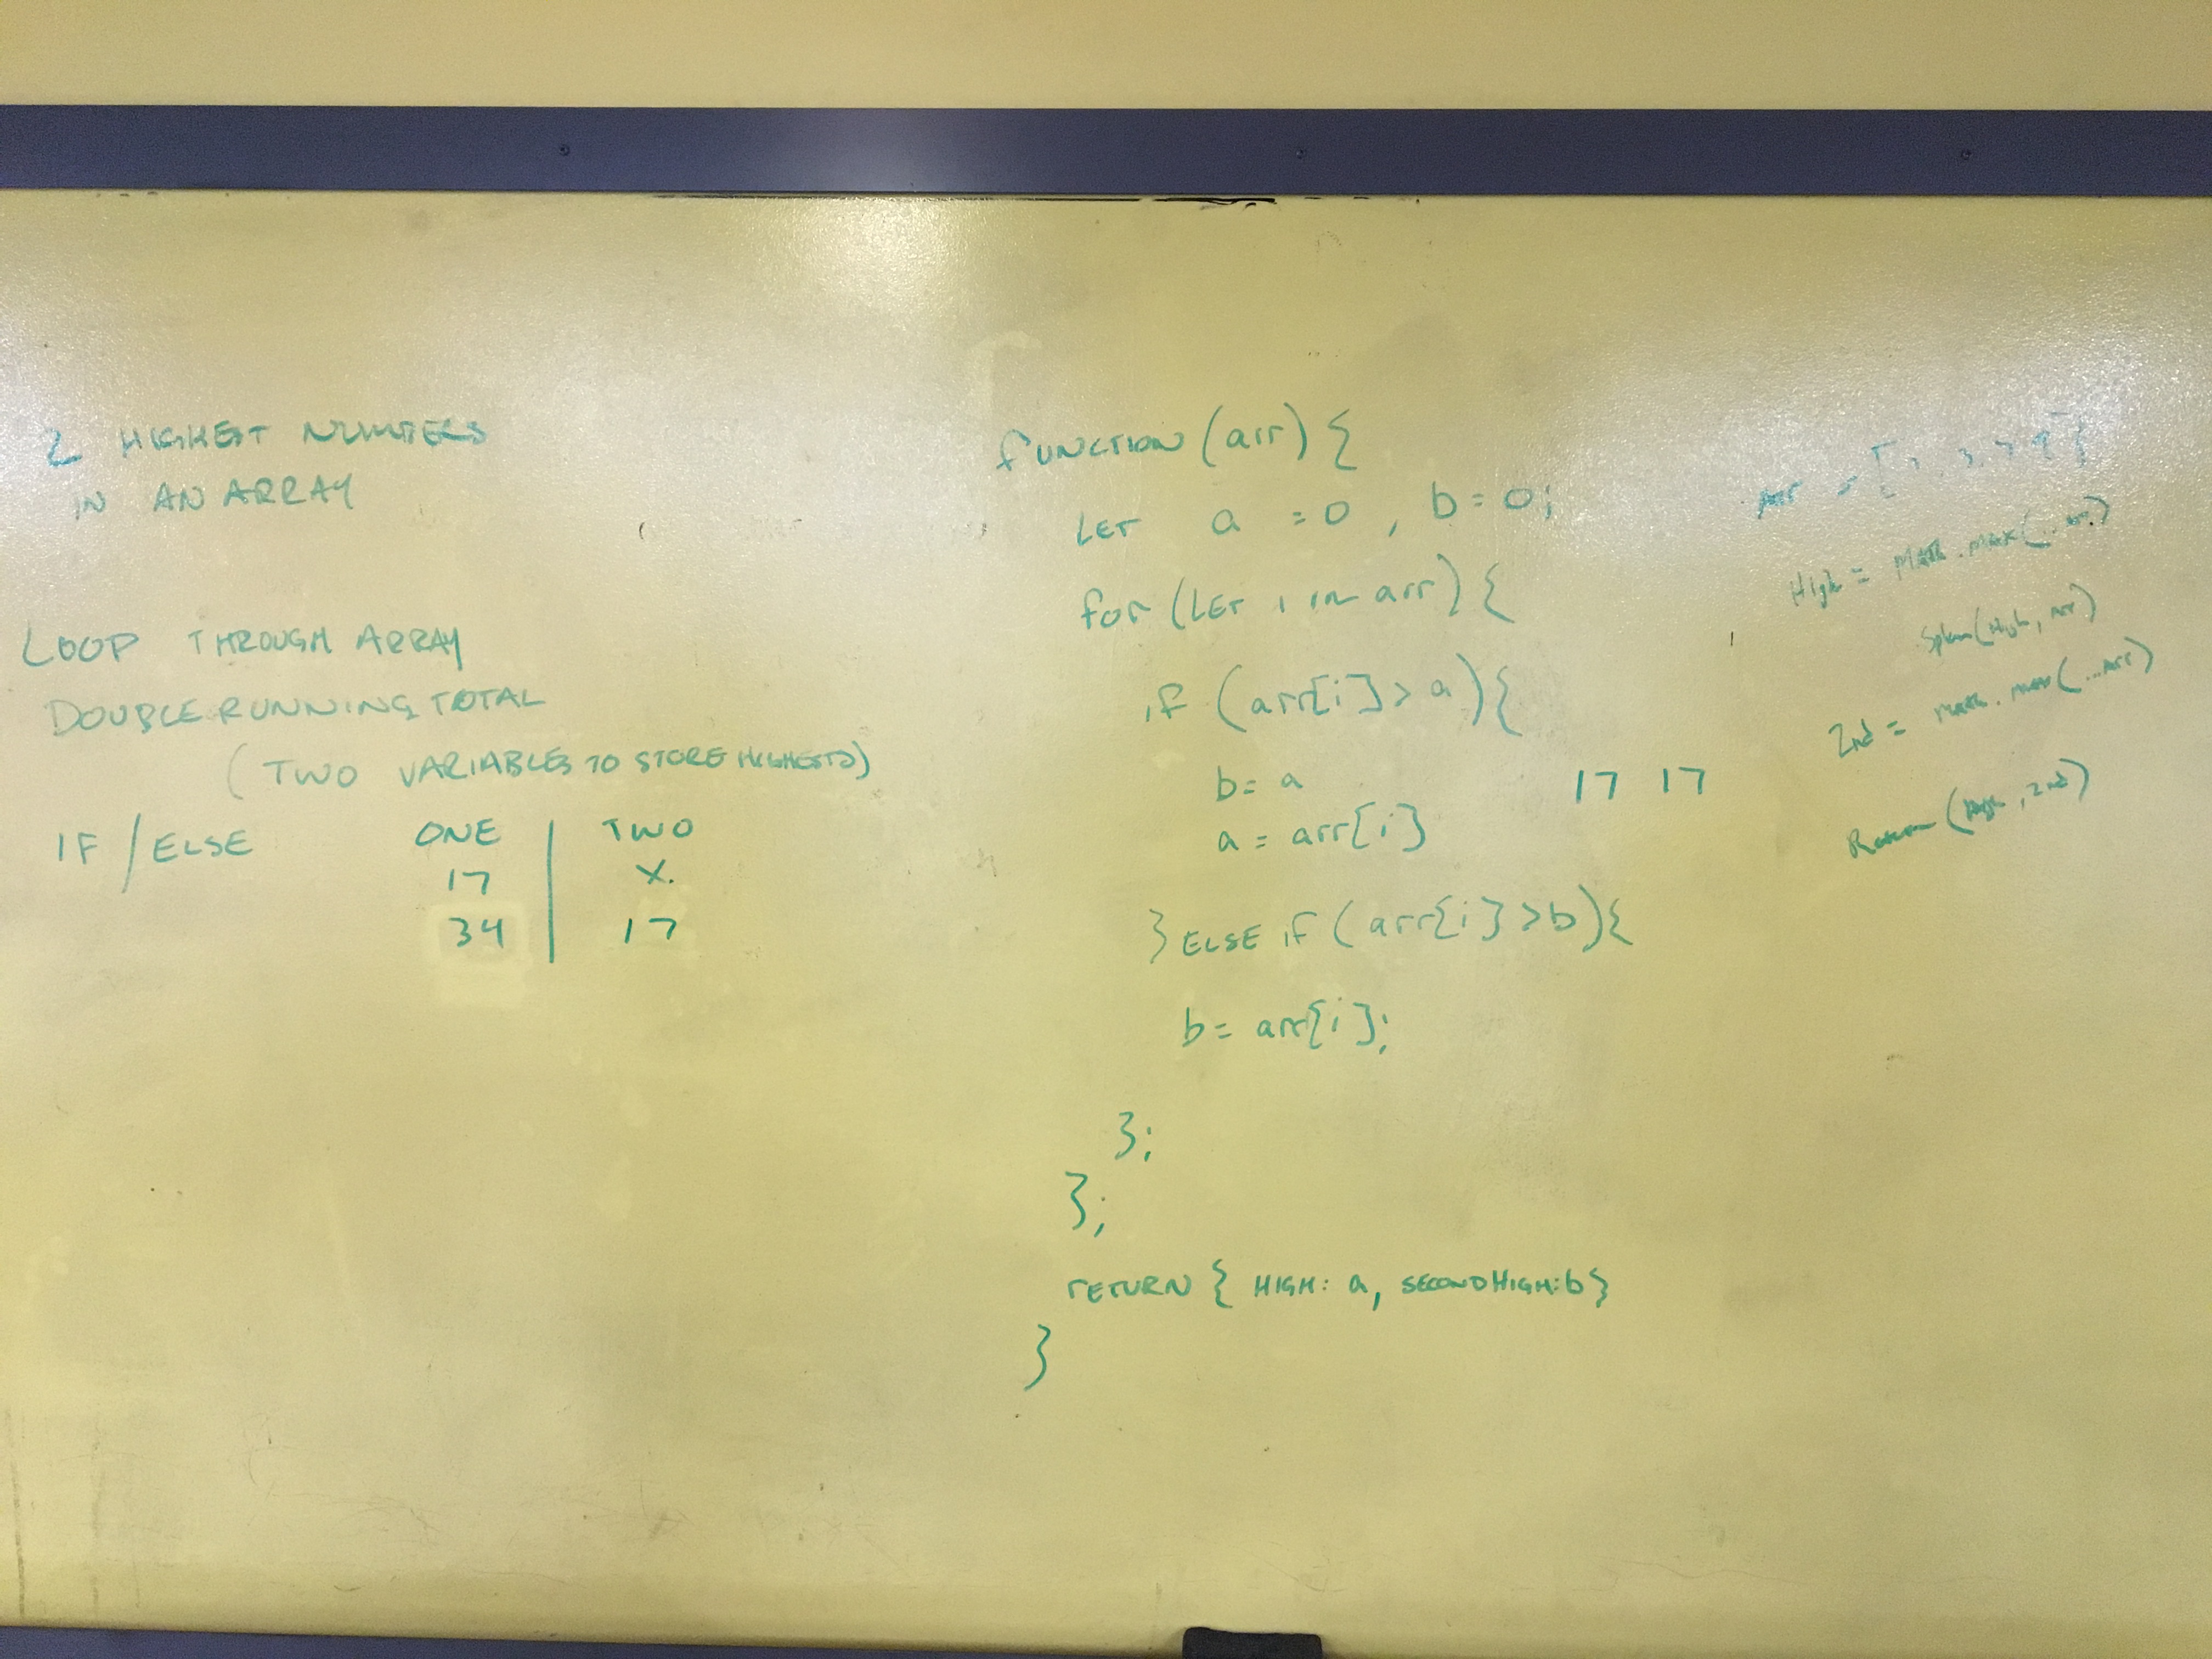 2 HIGHEST NUMBERS
IN AN ARRAY
LOOP THROUGH ARRAY
DOUBLE RUNNING TOTAL
(TWO VARIABLES TO STORE HIGHESTS)
IF / ELSE ONE TWO
17 X.
34 17
FUNCTION (arr) {
LET a = 0, b = 0;
for (LET i IN arr) {
if (arr[i] > a) {
b = a
17 17
a = arr[i]
} ELSE if (arr[i] > b) {
b = arr[i];
};
};
RETURN { HIGH: a, SECONDHIGH: b }
}
arr = [
High = Math.max(...arr)
(High, arr)
2nd = Math.max(...Arr)
Return (High, 2nd)